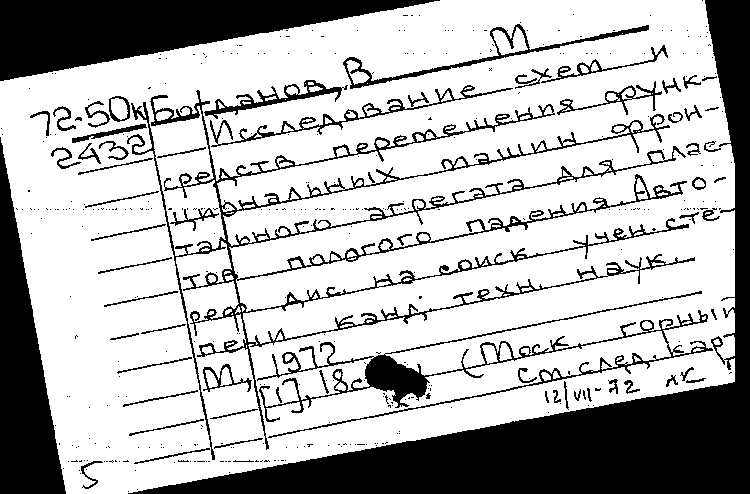 М
72-50к Богданов, В
2432 Исследование схем и
средств перемещения функ-
циональных машин фрон-
тального агрегата для плас-
тов пологого падения. Авто-
реф. дис. на соиск. учен. сте-
пени канд. техн. наук.
М., 1972.
[1], 18с (Моск. горный
См. след. карт
12/VII-72 АК
5